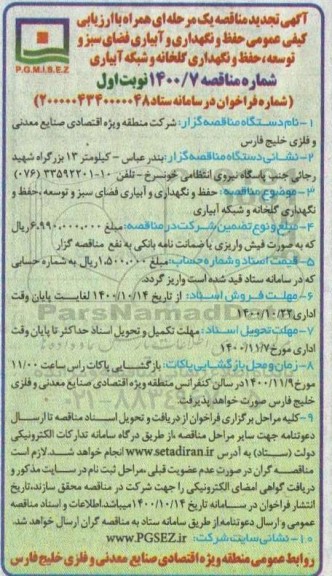 آگهی تجدید مناقصه یک مرحله ای همراه با ارزیابی
کیفی عمومی حفظ و نگهداری و آبیاری فضای سبز و
توسعه، حفظ و نگهداری گلخانه و شبکه آبیاری
P.G.M.I.S.E.Z
شماره مناقصه ۱۴۰۰/۷ نوبت اول
(شماره فراخوان در سامانه ستاد ۲۰۰۰۰۰۴۳۴۰۰۰۰۰۴۸)
۱- نام دستگاه مناقصه گزار: شرکت منطقه ویژه اقتصادی صنایع معدنی
و فلزی خلیج فارس
۲- نشانی دستگاه مناقصه گزار: بندر عباس - کیلومتر ۱۳ بزرگراه شهید
رجائی جنب پاسگاه نیروی انتظامی خونسرخ - تلفن ۱۰-۳۳۵۹۲۲۰۱ (۰۷۶)
۳- موضوع مناقصه: حفظ و نگهداری و آبیاری فضای سبز و توسعه، حفظ و
نگهداری گلخانه و شبکه آبیاری
۴- مبلغ و نوع تضمین شرکت در مناقصه: مبلغ ۶.۹۹۰.۰۰۰.۰۰۰ ریال
که به صورت فیش واریزی یا ضمانت نامه بانکی به نفع مناقصه گزار
۵- قیمت اسناد و شماره حساب: مبلغ ۱.۵۰۰.۰۰۰ ریال به شماره حسابی
که در سامانه ستاد قید شده است واریز گردد.
۶- مهلت فروش اسناد: از تاریخ ۱۴۰۰/۱۰/۱۴ لغایت پایان وقت
اداری ۱۴۰۰/۱۰/۲۲
۷- مهلت تحویل اسناد: مهلت تکمیل و تحویل اسناد حداکثر تا پایان وقت
اداری مورخ ۱۴۰۰/۱۱/۷
۸- زمان و محل بازگشایی پاکات: بازگشایی پاکات راس ساعت ۱۱/۰۰
مورخ ۱۴۰۰/۱۱/۹ در سالن کنفرانس منطقه ویژه اقتصادی صنایع معدنی و فلزی
خلیج فارس صورت خواهد پذیرفت
۹- کلیه مراحل برگزاری فراخوان از دریافت و تحویل اسناد مناقصه تا ارسال
دعوتنامه جهت سایر مراحل مناقصه، از طریق درگاه سامانه تدارکات الکترونیکی
دولت (ستاد) به آدرس www.setadiran.ir انجام خواهد شد. لازم است
مناقصه گران در صورت عدم عضویت قبلی، مراحل ثبت نام در سایت مذکور و
دریافت گواهی امضای الکترونیکی را جهت شرکت در مناقصه محقق سازند، تاریخ
انتشار فراخوان در سامانه تاریخ ۱۴۰۰/۱۰/۱۴ میباشد. اطلاعات و اسناد مناقصه
عمومی و ارسال دعوتنامه از طریق سامانه ستاد به مناقصه گران ارسال خواهد شد.
۱۰- نشانی سایت شرکت: www.PGSEZ.ir
روابط عمومی منطقه ویژه اقتصادی صنایع معدنی و فلزی خلیج فارس